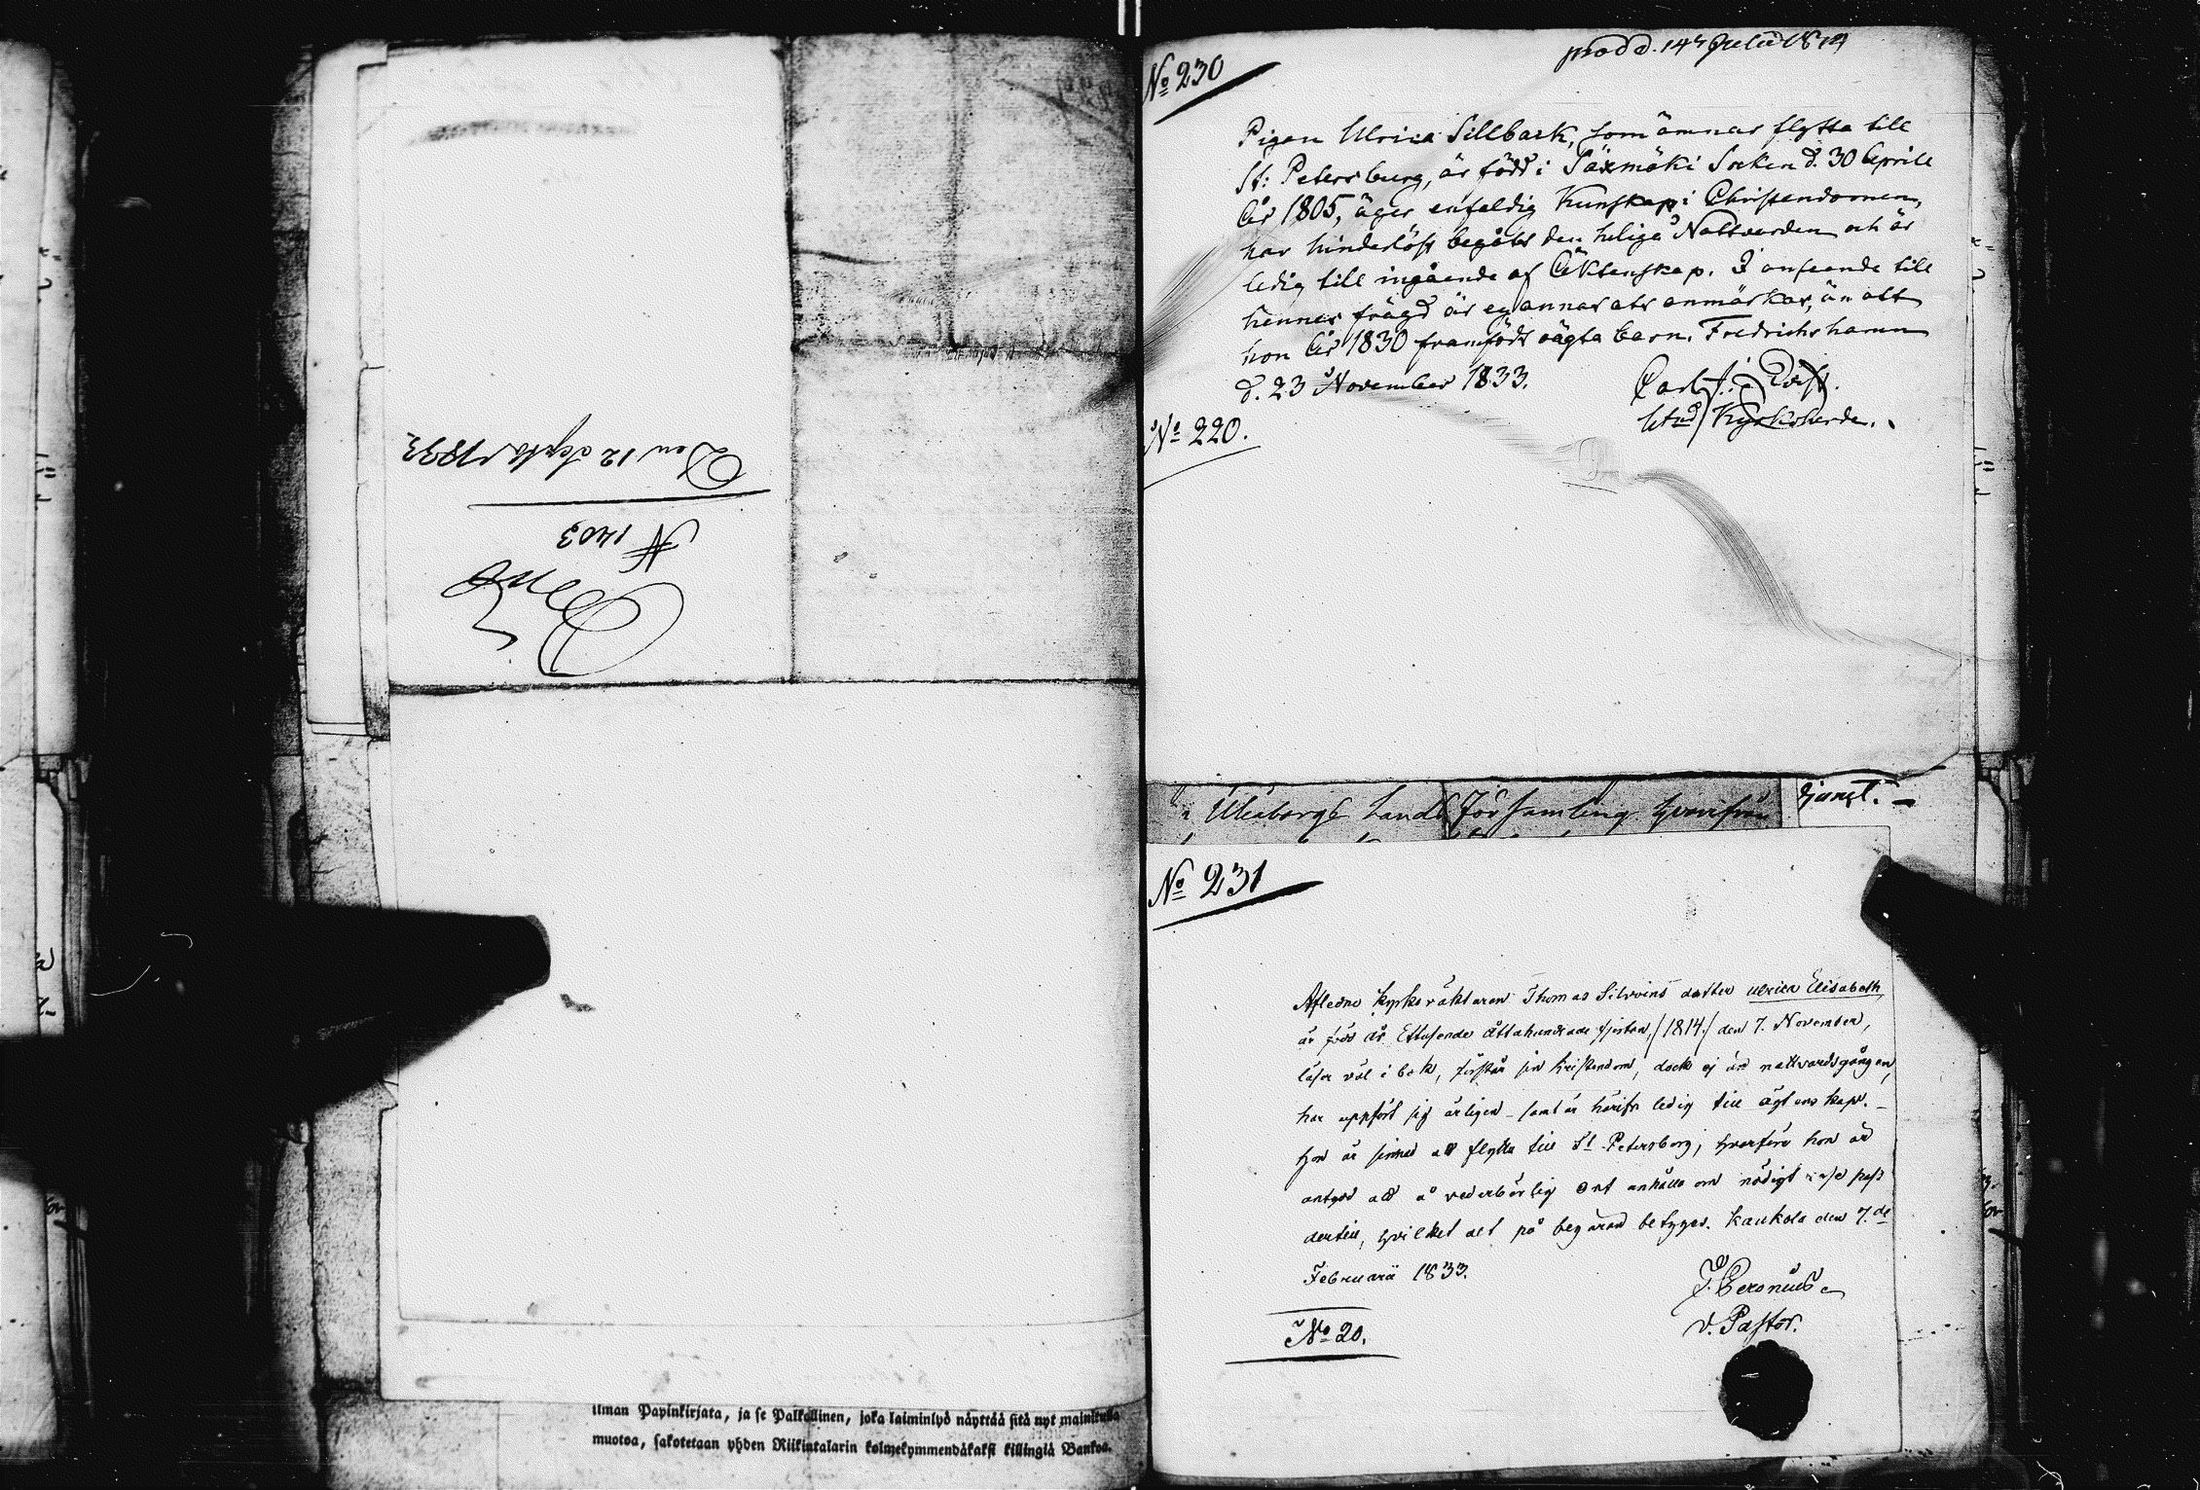 Den 12 Septbr 1833.
N 1403
ilman Papinkirjata, ja se Palkollinen, joka laiminlyö näyttää sitä nyt mainitulla
muotoa, sakotetaan yhden Riikintalarin kolmekymmendäkaksi killingiä Bankoa.
prodd. 14 Julii 18
No 230
Pigan Ulrica Sillbark, som ämnar flytta till
St: Petersburg, är född i Säxmäki Socken d. 30 Aprill
år 1805, äger enfaldig Kunskap i Christendomen,
har hinderlöst begått den heliga Nattvarden och är
ledig till ingående af Äktenskap. I anseende till
hennes frägd är ej annat att anmärka, än att
hon år 1830 framfödt oägta barn. Fredrichshamn
d. 23 November 1833.
Kyrkoherde.
No 220.
Uleåborgs Lands Församling hvarifrån
tjenst. —
No 231
Afledne kyrkoväktaren Thomas Silvoins dotter Ulrica Elisabeth,
är född år Ettusende åttahundrade fjorton /1814./ den 7. November,
läser väl i bok, förstår sin kristendom, dock ej än nattvardsgången,
har uppfört sig ärligen – samt är härifr. ledig till ägtenskap. –
Hon är sinnad att flytta till St Petersborg, hvarföre hon är
att å vederbörlig ort anhålla om nödigt rese pass
dertill, hvilket alt på begäran betygas. Kaukola den 7.de
Februarii 1833.
v. Pastor.
No 20.